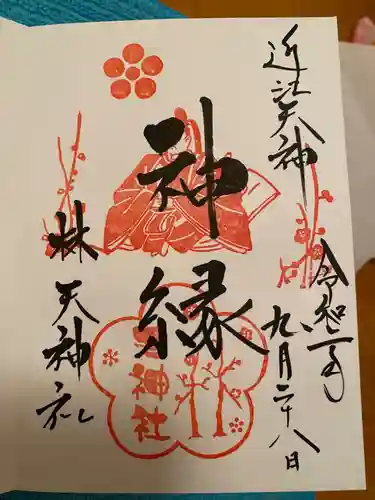 近江天神
令和
九月二十八日
神縁
神社
林天神社